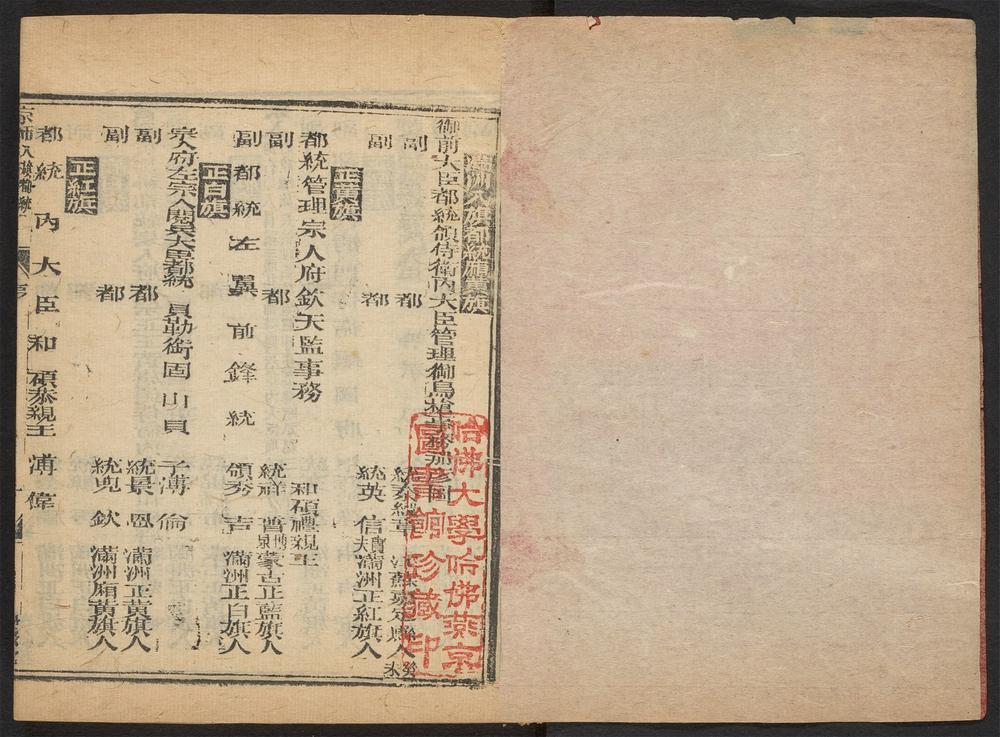 滿洲八旗都統鑲黃旗
御前大臣都統領侍衛內大臣管理御鳥槍事務那彥圖
副都統秦綬章 江蘇嘉定縣人 癸未
副都統英信 寶夫 滿洲正紅旗人
正黃旗
都統管理宗人府欽天監事務和碩禮親王
副都統祥普 博泉 蒙古正藍旗人
副都統左翼前鋒統領 滿洲正白旗人
正白旗
宗人府左宗人閱兵大臣都統 貝勒銜固山貝子溥倫
副都統景恩 滿洲正黃旗人
副都統兜欽 滿洲廂黃旗人
正紅旗
都統內大臣和碩恭親王溥偉
哈佛大學哈佛燕京
圖書館珍藏印